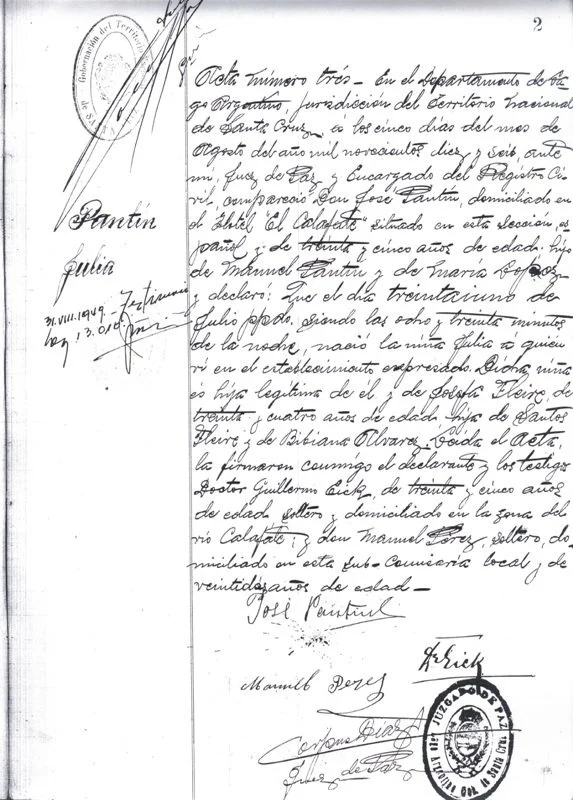 2
Gobernación del Territorio
Pantín
Julia
31.VIII.1949. Testimonio
Ley 13.010.
Acta número trés – En el Departamento de La-
go Argentino, Jurisdiccion del Territorio Nacional
de Santa Cruz, á los cinco dias del mes de
Agosto del año mil novecientos diez y seis, ante
mi, Juez de Paz y Encargado del Registro Ci-
vil, compareció Don José Pantín, domiciliado en
el Hotel "El Calafate" situado en esta sección, es-
pañol y de treinta y cinco años de edad, hijo
de Manuel Pantín y de María Lopez
y declaró: Que el dia treintaiuno de
Julio ppdo. siendo las ocho y treinta minutos
de la noche, nació la niña Julia a quien
vi en el establecimiento expresado. Dicha niña
és hija legítima de él y de Josefa Fleire, de
treinta y cuatro años de edad, hija de Santos
Fleire y de Bibiana Alvarez. Leida el Acta,
la firmaron conmigo el declarante y los testigos
Doctor Guillermo Eick, de treinta y cinco años
de edad, soltero y domiciliado en la zona del
rio Calafate; y don Manuel Perez, soltero, do-
miciliado en esta sub-Comisaría local y de
veintidos años de edad –
José Pantin
Dr Eick
Manuel Perez
Corpus Diaz
Juez de Paz
JUZGADO DE PAZ
Gob. de Santa Cruz